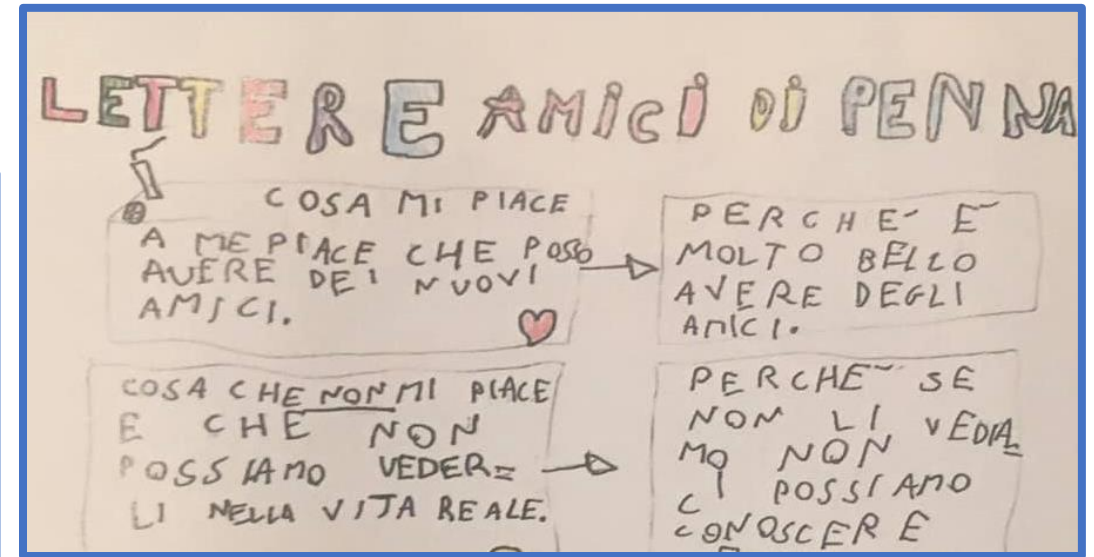 LETTERE AMICI DI PENNA
COSA MI PIACE
A ME PIACE CHE POSSO
AVERE DEI NUOVI
AMICI.
PERCHE- E-
MOLTO BELLO
AVERE DEGLI
AMICI.
COSA CHE NON MI PIACE
E CHE NON
POSSIAMO VEDER=
LI NELLA VITA REALE.
PERCHE~ SE
NON LI VEDIA_
MO NON
CI POSSIAMO
CONOSCERE E